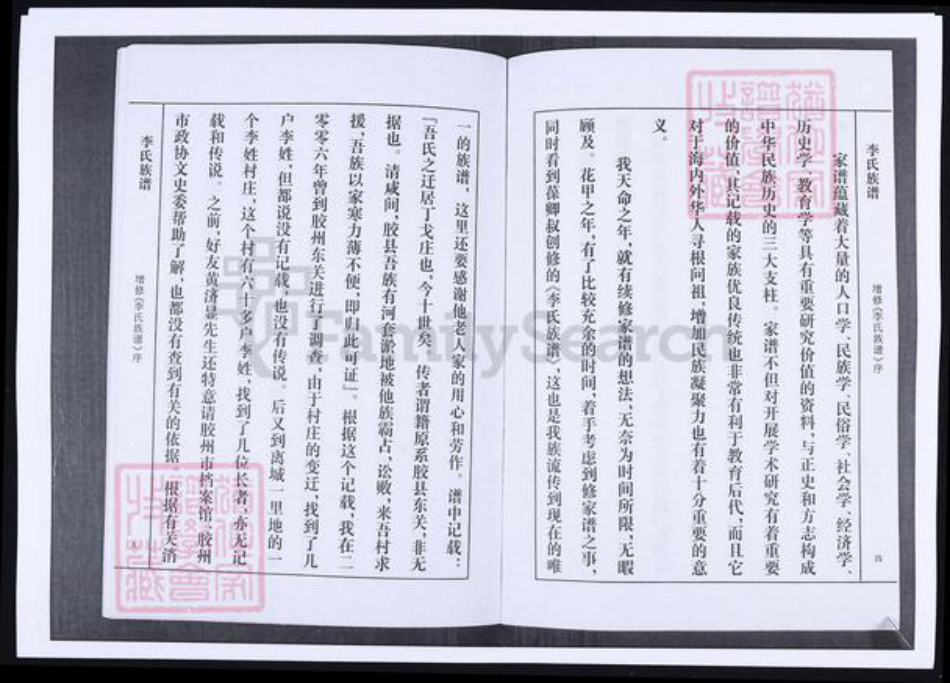 李氏族谱
增修《李氏族谱》序
四
家谱蕴藏着大量的人口学、民族学、民俗学、社会学、经济学、
历史学、教育学等具有重要研究价值的资料,与正史和方志构成
中华民族历史的三大支柱。家谱不但对开展学术研究有着重要
的价值,其记载的家族优良传统也非常有利于教育后代,而且它
对于海内外华人寻根问祖,增加民族凝聚力也有着十分重要的意
义。
我天命之年,就有续修家谱的想法,无奈为时间所限,无暇
顾及。花甲之年,有了比较充余的时间,着手考虑到修家谱之事,
同时看到葆卿叔创修的《李氏族谱》,这也是我族流传到现在的唯
一的族谱,这里还要感谢他老人家的用心和劳作。谱中记载:
『吾氏之迁居丁戈庄也,今十世矣。传者谓籍原系胶县东关,非无
据也。清咸间,胶县吾族有河套淤地被他族霸占,讼败,来吾村求
援,吾族以家寒力薄不便,即归此可证』。根据这个记载,我在二
零零六年曾到胶州东关进行了调查,由于村庄的变迁,找到了几
户李姓,但都说没有记载,也没有传说。后又到离城一里地的一
个李姓村庄,这个村有六十多户李姓,找到了几位长者,亦无记
载和传说。之前,好友黄济显先生还特意请胶州市档案馆、胶州
市政协文史委帮助了解,也都没有查到有关的依据。根据有关消
李氏族谱
增修《李氏族谱》序
FamilySearch